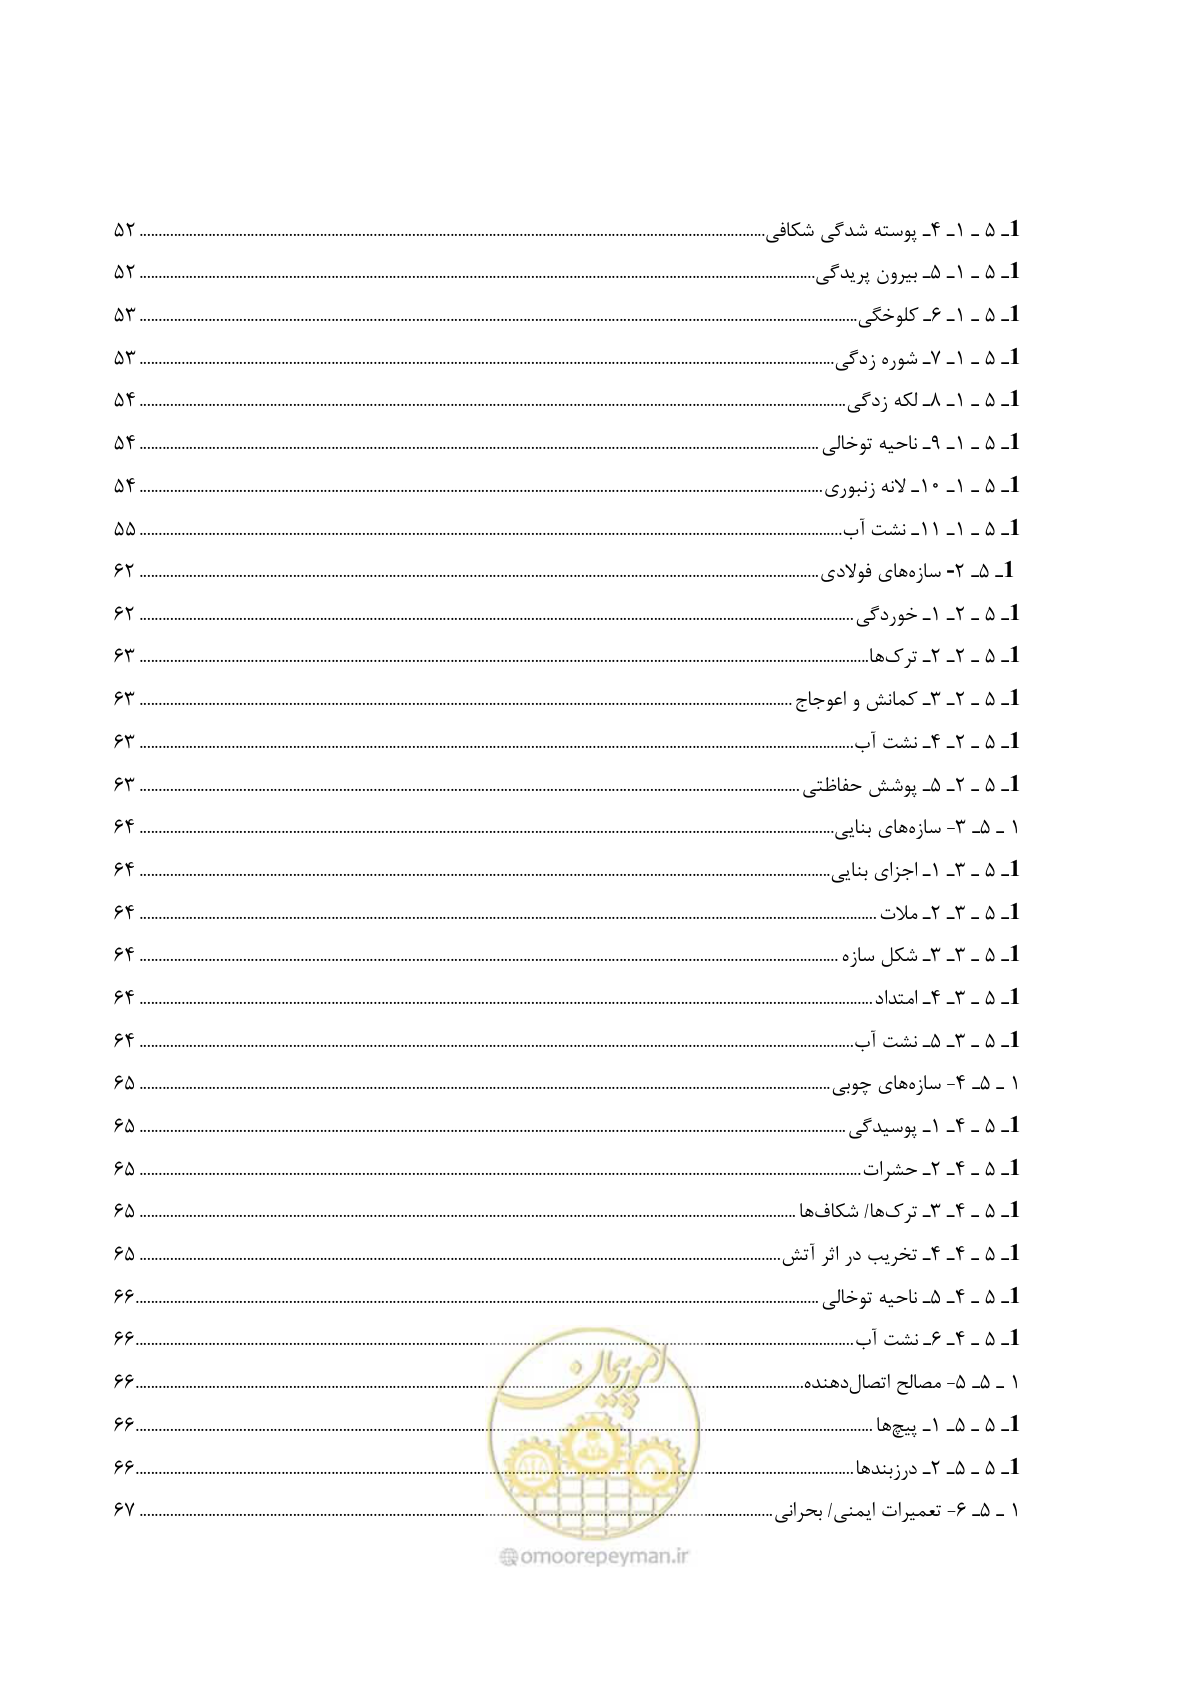 1ـ ۵ ـ ۱ـ ۴ـ پوسته شدگی شکافی ........ ۵۲
1ـ ۵ ـ ۱ـ ۵ـ بیرون پریدگی ........ ۵۲
1ـ ۵ ـ ۱ـ ۶ـ کلوخگی ........ ۵۳
1ـ ۵ ـ ۱ـ ۷ـ شوره زدگی ........ ۵۳
1ـ ۵ ـ ۱ـ ۸ـ لکه زدگی ........ ۵۴
1ـ ۵ ـ ۱ـ ۹ـ ناحیه توخالی ........ ۵۴
1ـ ۵ ـ ۱ـ ۱۰ـ لانه زنبوری ........ ۵۴
1ـ ۵ ـ ۱ـ ۱۱ـ نشت آب ........ ۵۵
1ـ ۵ـ ۲- سازه‌های فولادی ........ ۶۲
1ـ ۵ ـ ۲ـ ۱ـ خوردگی ........ ۶۲
1ـ ۵ ـ ۲ـ ۲ـ ترک‌ها ........ ۶۳
1ـ ۵ ـ ۲ـ ۳ـ کمانش و اعوجاج ........ ۶۳
1ـ ۵ ـ ۲ـ ۴ـ نشت آب ........ ۶۳
1ـ ۵ ـ ۲ـ ۵ـ پوشش حفاظتی ........ ۶۳
۱ ـ ۵ـ ۳- سازه‌های بنایی ........ ۶۴
1ـ ۵ ـ ۳ـ ۱ـ اجزای بنایی ........ ۶۴
1ـ ۵ ـ ۳ـ ۲ـ ملات ........ ۶۴
1ـ ۵ ـ ۳ـ ۳ـ شکل سازه ........ ۶۴
1ـ ۵ ـ ۳ـ ۴ـ امتداد ........ ۶۴
1ـ ۵ ـ ۳ـ ۵ـ نشت آب ........ ۶۴
۱ ـ ۵ـ ۴- سازه‌های چوبی ........ ۶۵
1ـ ۵ ـ ۴ـ ۱ـ پوسیدگی ........ ۶۵
1ـ ۵ ـ ۴ـ ۲ـ حشرات ........ ۶۵
1ـ ۵ ـ ۴ـ ۳ـ ترک‌ها/ شکاف‌ها ........ ۶۵
1ـ ۵ ـ ۴ـ ۴ـ تخریب در اثر آتش ........ ۶۵
1ـ ۵ ـ ۴ـ ۵ـ ناحیه توخالی ........ ۶۶
1ـ ۵ ـ ۴ـ ۶ـ نشت آب ........ ۶۶
۱ ـ ۵ـ ۵- مصالح اتصال‌دهنده ........ ۶۶
1ـ ۵ ـ ۵ـ ۱ـ پیچ‌ها ........ ۶۶
1ـ ۵ ـ ۵ـ ۲ـ درزبندها ........ ۶۶
۱ ـ ۵ـ ۶- تعمیرات ایمنی/ بحرانی ........ ۶۷
امور پیمان
@omoorepeyman.ir